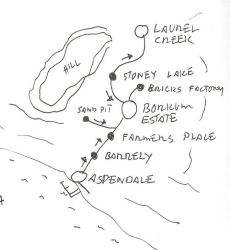 LAUREL
CREEK
HILL
STONEY LAKE
BRICKS FACTORY
SAND PIT
BORICUM
ESTATE
FARMERS PLACE
BORRELY
ASPENDALE